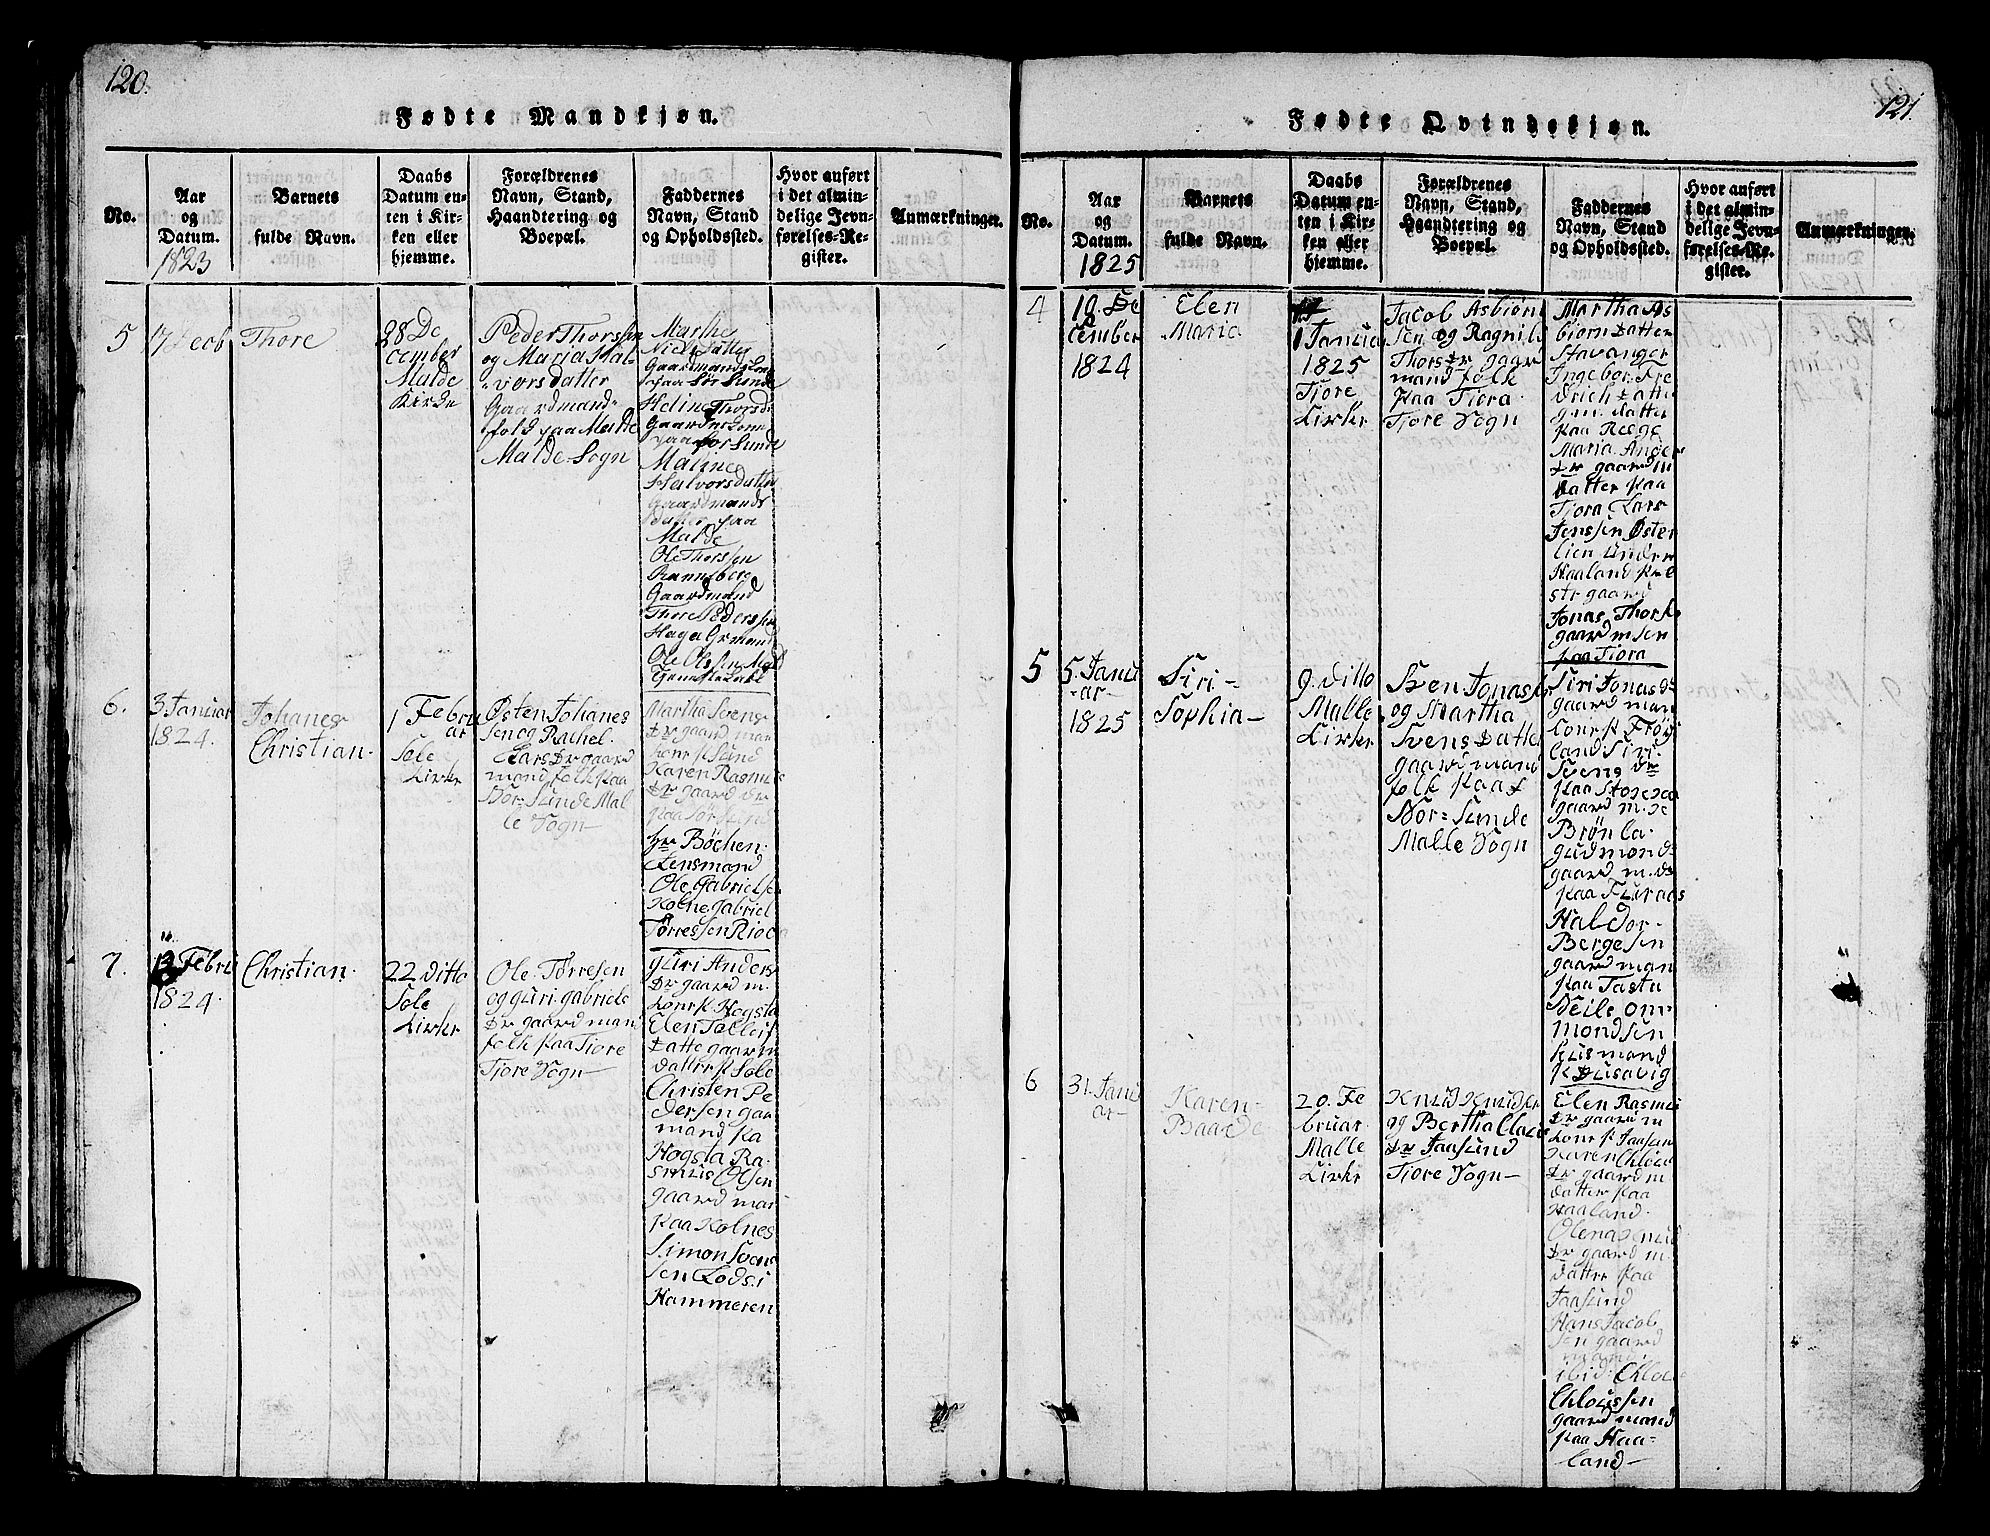 120.
Fødte Mandkjøn.
No.
Aar
og
Datum.
1823
Barnets
fulde Navn.
Daabs
Datum en-
ten i Kir-
ken eller
hjemme.
Forældrenes
Navn, Stand,
Haandtering og
Boepæl.
Faddernes
Navn, Stand
og Opholdssted.
Hvor anført
i det almin-
delige Jevn-
førelses-Re-
gister.
Anmærkninger.
5
17 Decb
Thore
28 De
cember
Malde
Kirke
Peder Thorssen
og Maria Hal
vorsdatter
Gaardmand-
folk paa Malde
Malde Sogn
Marthe
Niels Datter
Gaardmandskone
paa Sør Sunde
Heline Thorsdr
Gaardmkone
paa Nor Sunde
Maline
Halvorsdatter
Gaardmands
datter paa
Malde
Ole Thorssen
Ranneberg
Gaardmand
Thore Pederssen
Haga Grmand
Ole Olssen Mald
Tjenestekarl
6.
3 Januar
1824.
Johanes
Christian.
1 Febru
ar
Sole
Kirke
Østen Johanes
sen og Rachel
Lars Dr gaard
mand folk paa
Nor Sunde Mal
le Sogn
Martha Svens
Dr gaard man
kone p Sund
Karen Rasmus
Dr gaard dr
paa Sør Sund
Hr Böchen
Lensmand
Ole Gabrielsen
Kolne Gabriel
Tørressen Rioda
7.
13 Febru
1824.
Christian.
22 Ditto
Sole
Kirke
Ole Tørresen
og Guri Gabriels
Dr gaard man
folk paa Tiore
Tiore Sogn
Guri Anders
Dr gaard m.
kone p. Hogsta
Elen Tolleif
Datte gaar m
datter p Sole
Christen Pe
dersen gaa
mand pa
Hogsta Ra
smus Olsen
gaard man
paa Kolnes
Simon Sven
sen Lods i
Hammeren
121.
Fødte Qvindekjøn.
No.
Aar
og
Datum.
1825
Barnets
fulde Navn.
Daabs
Datum en-
ten i Kir-
ken eller
hjemme.
Forældrenes
Navn, Stand,
Haandtering og
Boepæl.
Faddernes
Navn, Stand
og Opholdssted.
Hvor anført
i det almin-
delige Jevn-
førelses-Re-
gister.
Anmærkninger.
4
10. De
cember
1824
Elen
Maria
1 Januar
1825
Tiore
Kirke
Jacob Asbiørn
sen og Ragnild
Thors Dr gaar
mand folk
paa Tiora
Tiore Sogn
Martha As
biørn Datter
Stavanger
Ingebor Fre
drich Datter
g.m. datter
paa Reege
Maria Ander
Dr gaard m
datter paa
Tiora Lars
Jenssen Øster
lien under
Haaland
gaard
Jonas Thors
gaard m sen
paa Tiora
5
5. Janu
-ar-
1825
Siri-
Sophia-
9. ditto
Malle
Kirke
Sven Jonas
og Martha
Svens Datter
gaard mand
folk paa
Nor-Sunde
Malle Sogn
Siri Jonas D
gaard man
kone p. Frøy
land Siri
Svens Dr
paa Store
gaard m.
Brønla
Gudmond
gaard m. d
paa Furaas
Haldor
Bergesen
gaard man
paa Tastu
Neile Om
mondsen
Husmand
p Dusavig
6
31. Janu
ar-
Karen-
Baarde
20. Fe
bruar
Malle
Kirke
Knud Knudsen
og Bertha Claus
Dr Jaasund
Tiore Sogn
Elen Rasmus
Dr gaard m
kone p Jaasun
Karen Chlous
Dr gaard m
datter paa
Haaland.
Olena Knud
Dr gaard m.
datter paa
Jaasund
Hans Jacob
sen gaard
mand
ibid. Chlous
Chloussen
gaard mand
paa Haa-
land-